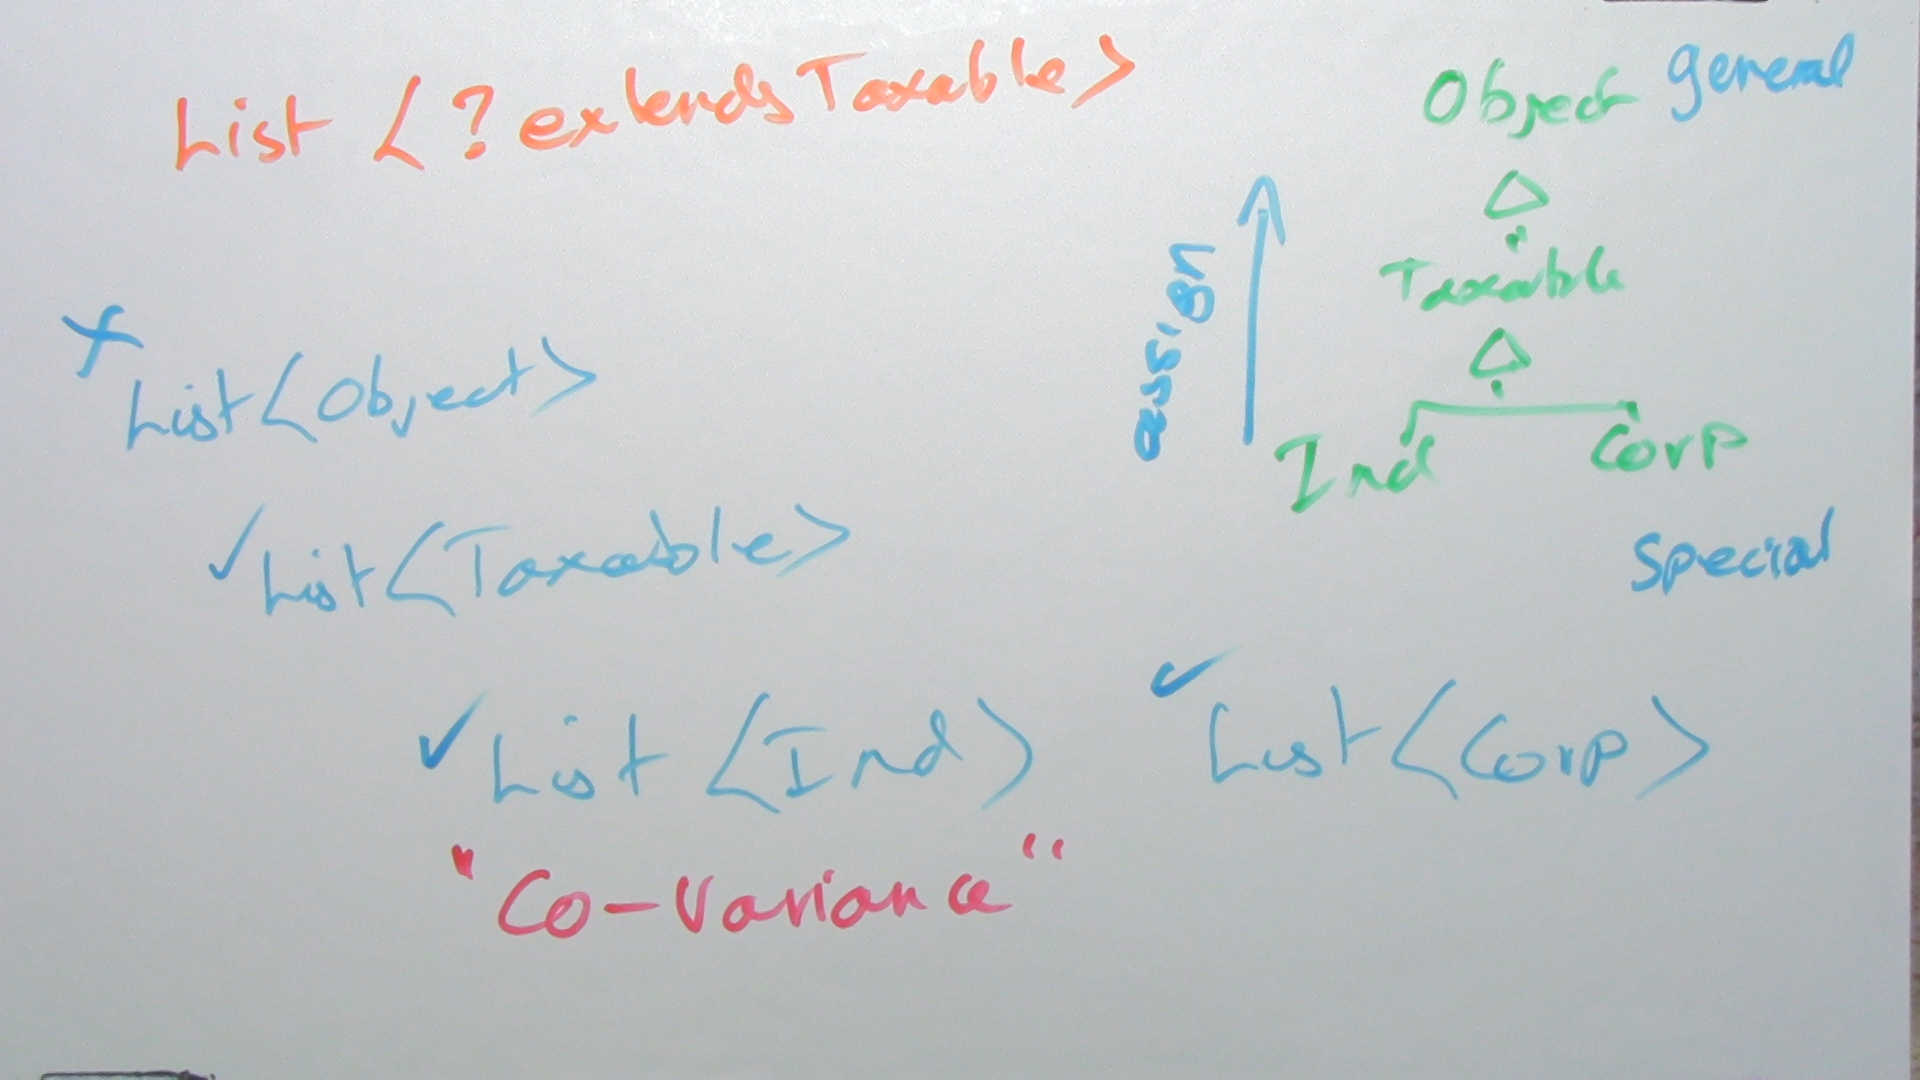 List <? extends Taxable>
Object general
assign
Taxable
Ind Corp
special
x List<Object>
✓ List<Taxable>
✓ List<Ind> ✓ List<Corp>
"Co-Variance"